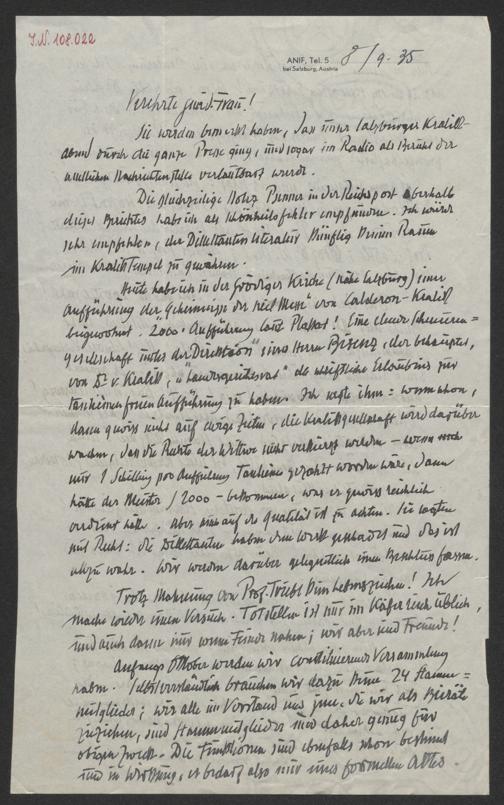 J.N. 108.022
ANIF, Tel. 5
bei Salzburg, Austria
8/9. 35
Verehrte gnäd. Frau!
Sie werden bemerkt haben, dass unser Salzburger Kralik-
abend durch die ganze Presse ging, und sogar im Radio als Bericht der
amtlichen Nachrichtenstelle verlautbart wurde.
Die gleichzeitige Notiz in der Reichspost oberhalb
dieses Berichtes habe ich als Schönheitsfehler empfunden. Ich würde
sehr empfehlen, der Dilettantenliteratur künftig keinen Raum
im Kralik Tempel zu gewähren.
Heute habe ich in der Grödiger Kirche (nahe Salzburg) einer
Aufführung der "Geheimnisse der heil Messe" von Calderon-Kralik
beigewohnt. 2000. Aufführung laut Plakat! Eine
gesellschaft unter der "Direktion" eines Herrn , der behauptet,
von Dr v. Kralik, die schriftliche Erlaubnis zur
tantiemenfreien Aufführung zu haben. Ich sagte ihm: wenn schon,
dann gewiss nicht auf ewige Zeiten, die Kralikgesellschaft wird darüber
wachen, dass die Rechte der Witwe nicht verkürzt werden – wenn auch
nur 1 Schilling pro Aufführung Tantieme gezahlt worden wäre, dann
hätte der Meister S 2000 – bekommen, was er gewiss reichlich
verdient hätte. Aber auch auf die Qualität ist zu achten. Sie sagten
mit Recht: die Dilettanten haben dem Werk geschadet und das ist
allzu wahr. Wir werden darüber gelegentlich einen Beschluss fassen.
Trotz Mahnung von Prof. kein Lebenszeichen! Ich
mache wieder einen Versuch. Totstellen ist nur im Käferreich üblich,
und auch dann nur wenn Feinde nahen; wir aber sind Freunde!
Anfangs Oktober werden wir constituierende Versammlung
haben. Selbstverständlich brauchen wir dazu keine 24 Stamm=
mitglieder; wir alle im Vorstand und jene, die wir als Beiräte
zuziehen, sind Stammmitglieder und daher genug für
obigen Zweck. Die Funktionen sind ebenfalls schon bestimmt
und in Wirkung, es bedarf also nur eines formellen Aktes.